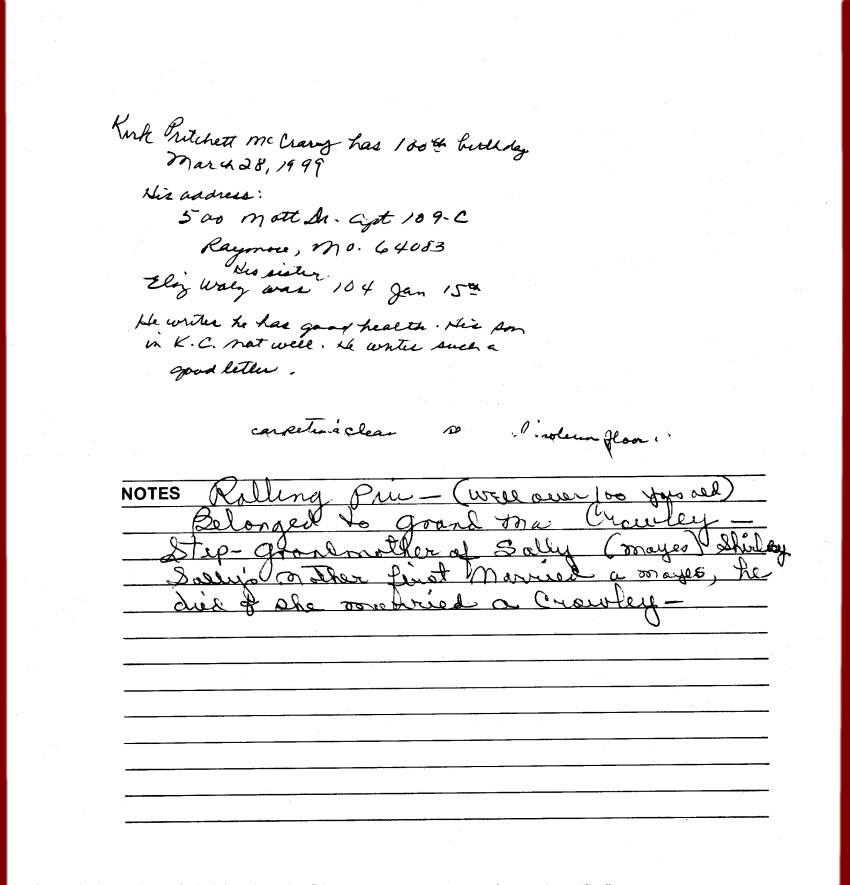 Kirk Pritchett McCrary has 100th birthday
March 28, 1999
His address:
500 Mott Dr. Apt 109-C
Raymore, Mo. 64083
His sister
Eliz was 104 Jan 15th
He writes he has good health. His son
in K.C. not well. He writes such a
good letter.
clean so floor
NOTES Rolling Pin — (well over 100 yrs old)
Belonged to Grand Ma Crowley —
Step-Grandmother of Sally (Mayes) Shirley
Sally's Mother first Married a Mayes, he
died & she married a Crowley —